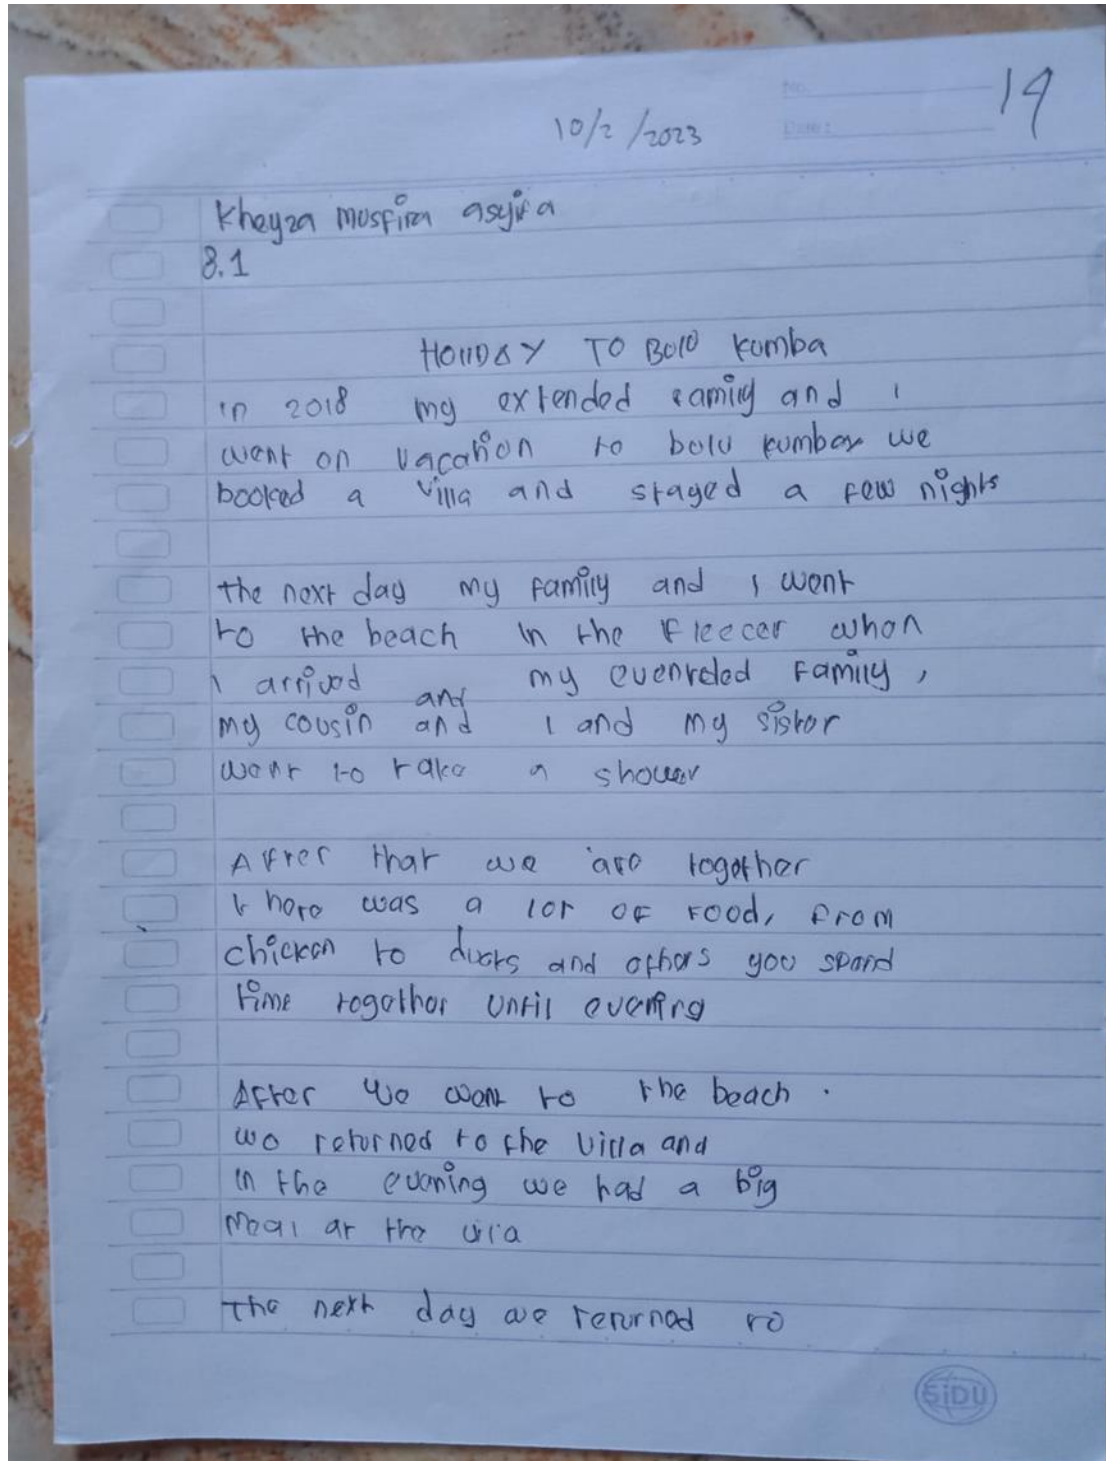 No.
19
10/2/2023
Date:
Kheyza musfira asyifa
8.1
HOlIDAY TO Bolo kumba
in 2018 my extended family and i
went on vacation to bolu kumba we
booked a villa and stayed a few nights
the next day my family and I went
to the beach in the Fleecer when
I arrived my evenrded family,
and
my cousin and I and my sister
went to take a shower
After that we are together
there was a lot of food, from
chicken to ducks and others you spend
time together until evening
After we went to the beach.
we returned to the villa and
in the evening we had a big
meal at the vila
the next day we returned to
SiDU